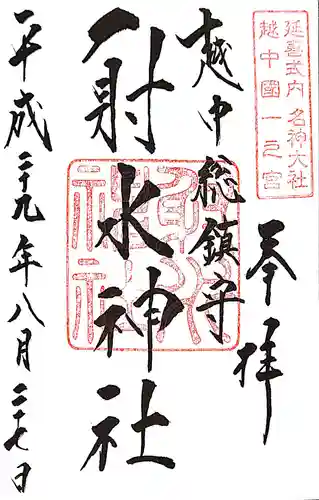 延喜式内名神大社
越中國一之宮
奉拝
越中総鎮守
射水神社
平成二十九年八月二十七日